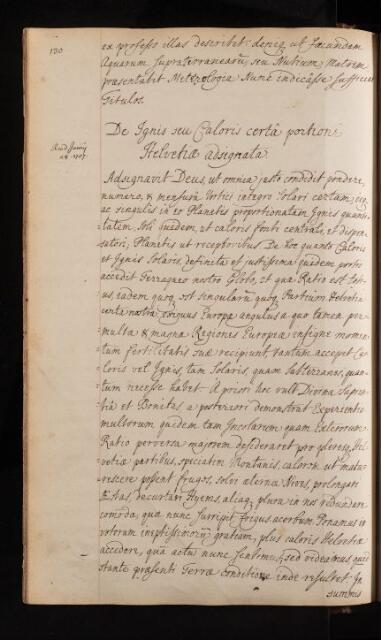 130
ex professo illas describet: deniq, ut fœcundam
Aquarum supraterranearum, seu Nubium Matrem
præsentabit Meteorologia. Nunc indicasse sufficiat
Titulos.
De Ignis seu Caloris certâ portione
Helvetiæ adsignata.
1707.
Adsignavit Deus, ut omnia justo condidit pondere,
numero, & mensurâ, Vortici integro Solari certam,
ac singulis in eo Planetis proportionatam Ignis quanti-
tatem, Soli quidem, ut caloris fonti centrali, et dispen-
satori, Planetis ut receptoribus. De hoc quanto Caloris
et Ignis Solaris definita et justissima quædam portio
accedit Terraqueo nostro Globo, et quæ Ratio est Toti-
us, eadem quoq est singularum quoq Partium. Helvetia
nostra, Europæ angulus a quo tamen per
multæ & magnæ Regiones Europeæ insigne momen-
tum fertilitatis suæ recipiunt tantum accepit Ca-
loris vel Ignis, tam Solaris, quam Subterranei, quan-
tum necesse habet. A priori hoc vult Divina Sapien-
tia et Bonitas, a posteriori demonstrat Experientia
multorum quidem tam Incolarum quam Exterorum
Ratio perversa majorem desideraret pro plerisq Hel-
vetiæ partibus, speciatim Montanis, calorem, ut matu-
rescere possent fruges, solvi æternæ Nives, prolongari
Æstas, decurtari Hyems, aliaq plura in nos redundare
comoda, quæ nunc surripit frigus acerbum. Ponamus in
votorum ineptissimorum gratiam, plus caloris Helvetiæ
accedere, quam actu nunc sentimus, sed videamus, quid
stante præsenti Terræ conditione inde resultet. In
summis